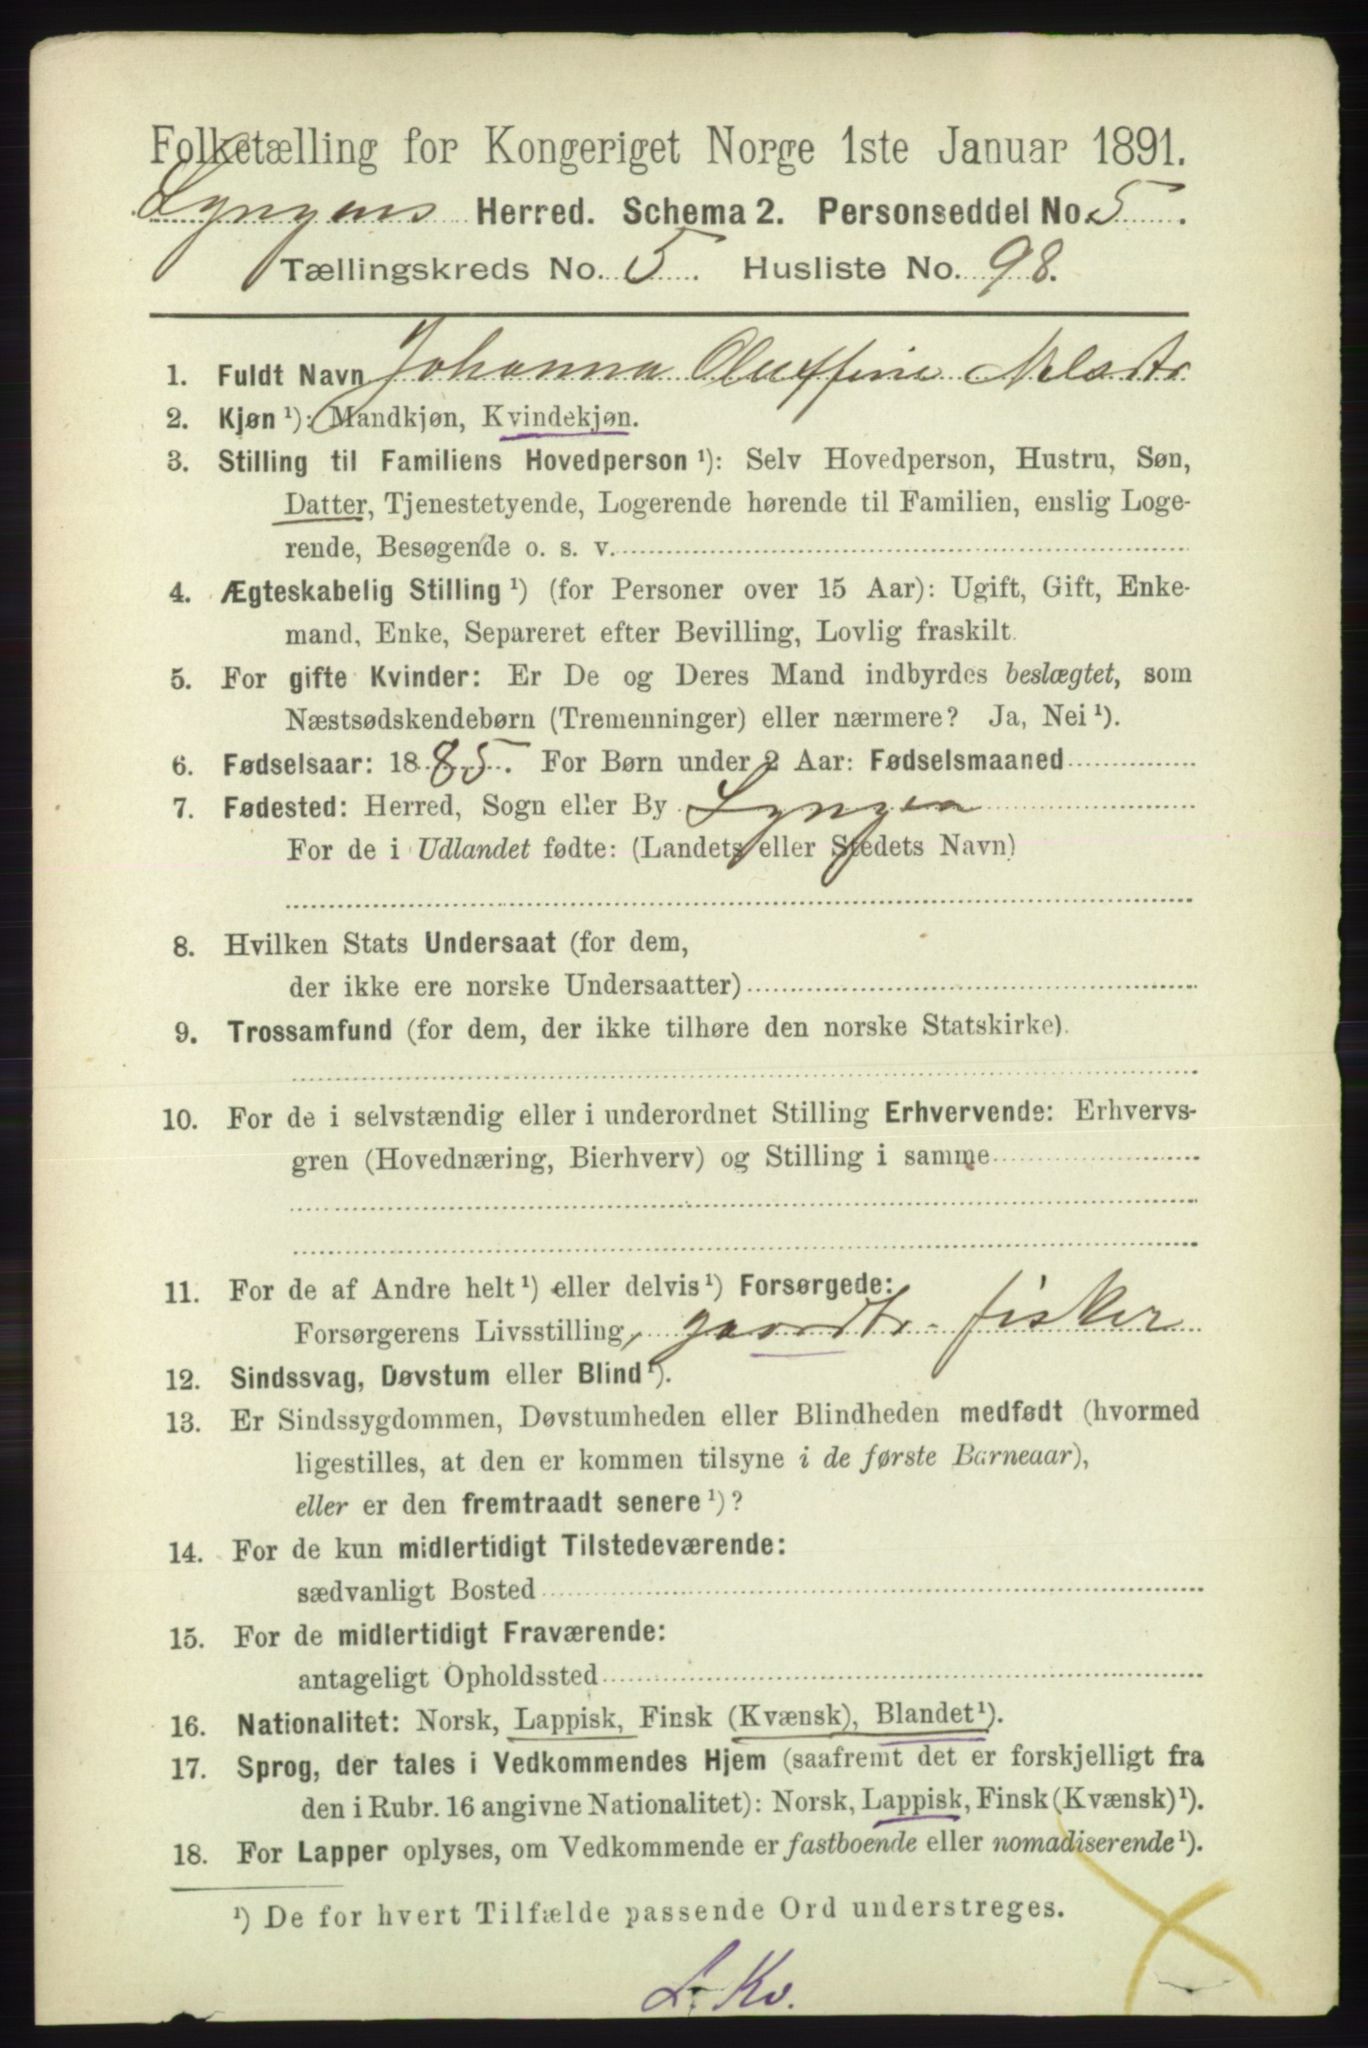 Folketælling for Kongeriget Norge 1ste Januar 1891.
Lyngens Herred. Schema 2. Personseddel No. 5.
Tællingskreds No. 5. Husliste No. 98.
1. Fuldt Navn Johanna Oluffine Nelsdtr
2. Kjøn ¹): Mandkjøn, Kvindekjøn.
3. Stilling til Familiens Hovedperson ¹): Selv Hovedperson, Hustru, Søn,
Datter, Tjenestetyende, Logerende hørende til Familien, enslig Loge-
rende, Besøgende o. s. v.
4. Ægteskabelig Stilling ¹) (for Personer over 15 Aar): Ugift, Gift, Enke-
mand, Enke, Separeret efter Bevilling, Lovlig fraskilt.
5. For gifte Kvinder: Er De og Deres Mand indbyrdes beslægtet, som
Næstsødskendebørn (Tremenninger) eller nærmere? Ja, Nei ¹).
6. Fødselsaar: 1885. For Børn under 2 Aar: Fødselsmaaned
7. Fødested: Herred, Sogn eller By Lyngen
For de i Udlandet fødte: (Landets eller Stedets Navn)
8. Hvilken Stats Undersaat (for dem,
der ikke ere norske Undersaatter)
9. Trossamfund (for dem, der ikke tilhøre den norske Statskirke).
10. For de i selvstændig eller i underordnet Stilling Erhvervende: Erhvervs-
gren (Hovednæring, Bierhverv) og Stilling i samme
11. For de af Andre helt ¹) eller delvis ¹) Forsørgede:
Forsørgerens Livsstilling, gaardbr. fisker
12. Sindssvag, Døvstum eller Blind ¹).
13. Er Sindssygdommen, Døvstumheden eller Blindheden medfødt (hvormed
ligestilles, at den er kommen tilsyne i de første Barneaar),
eller er den fremtraadt senere ¹)?
14. For de kun midlertidigt Tilstedeværende:
sædvanligt Bosted
15. For de midlertidigt Fraværende:
antageligt Opholdssted
16. Nationalitet: Norsk, Lappisk, Finsk (Kvænsk), Blandet ¹).
17. Sprog, der tales i Vedkommendes Hjem (saafremt det er forskjelligt fra
den i Rubr. 16 angivne Nationalitet): Norsk, Lappisk, Finsk (Kvænsk) ¹).
18. For Lapper oplyses, om Vedkommende er fastboende eller nomadiserende ¹).
¹) De for hvert Tilfælde passende Ord understreges.
L. Kv.